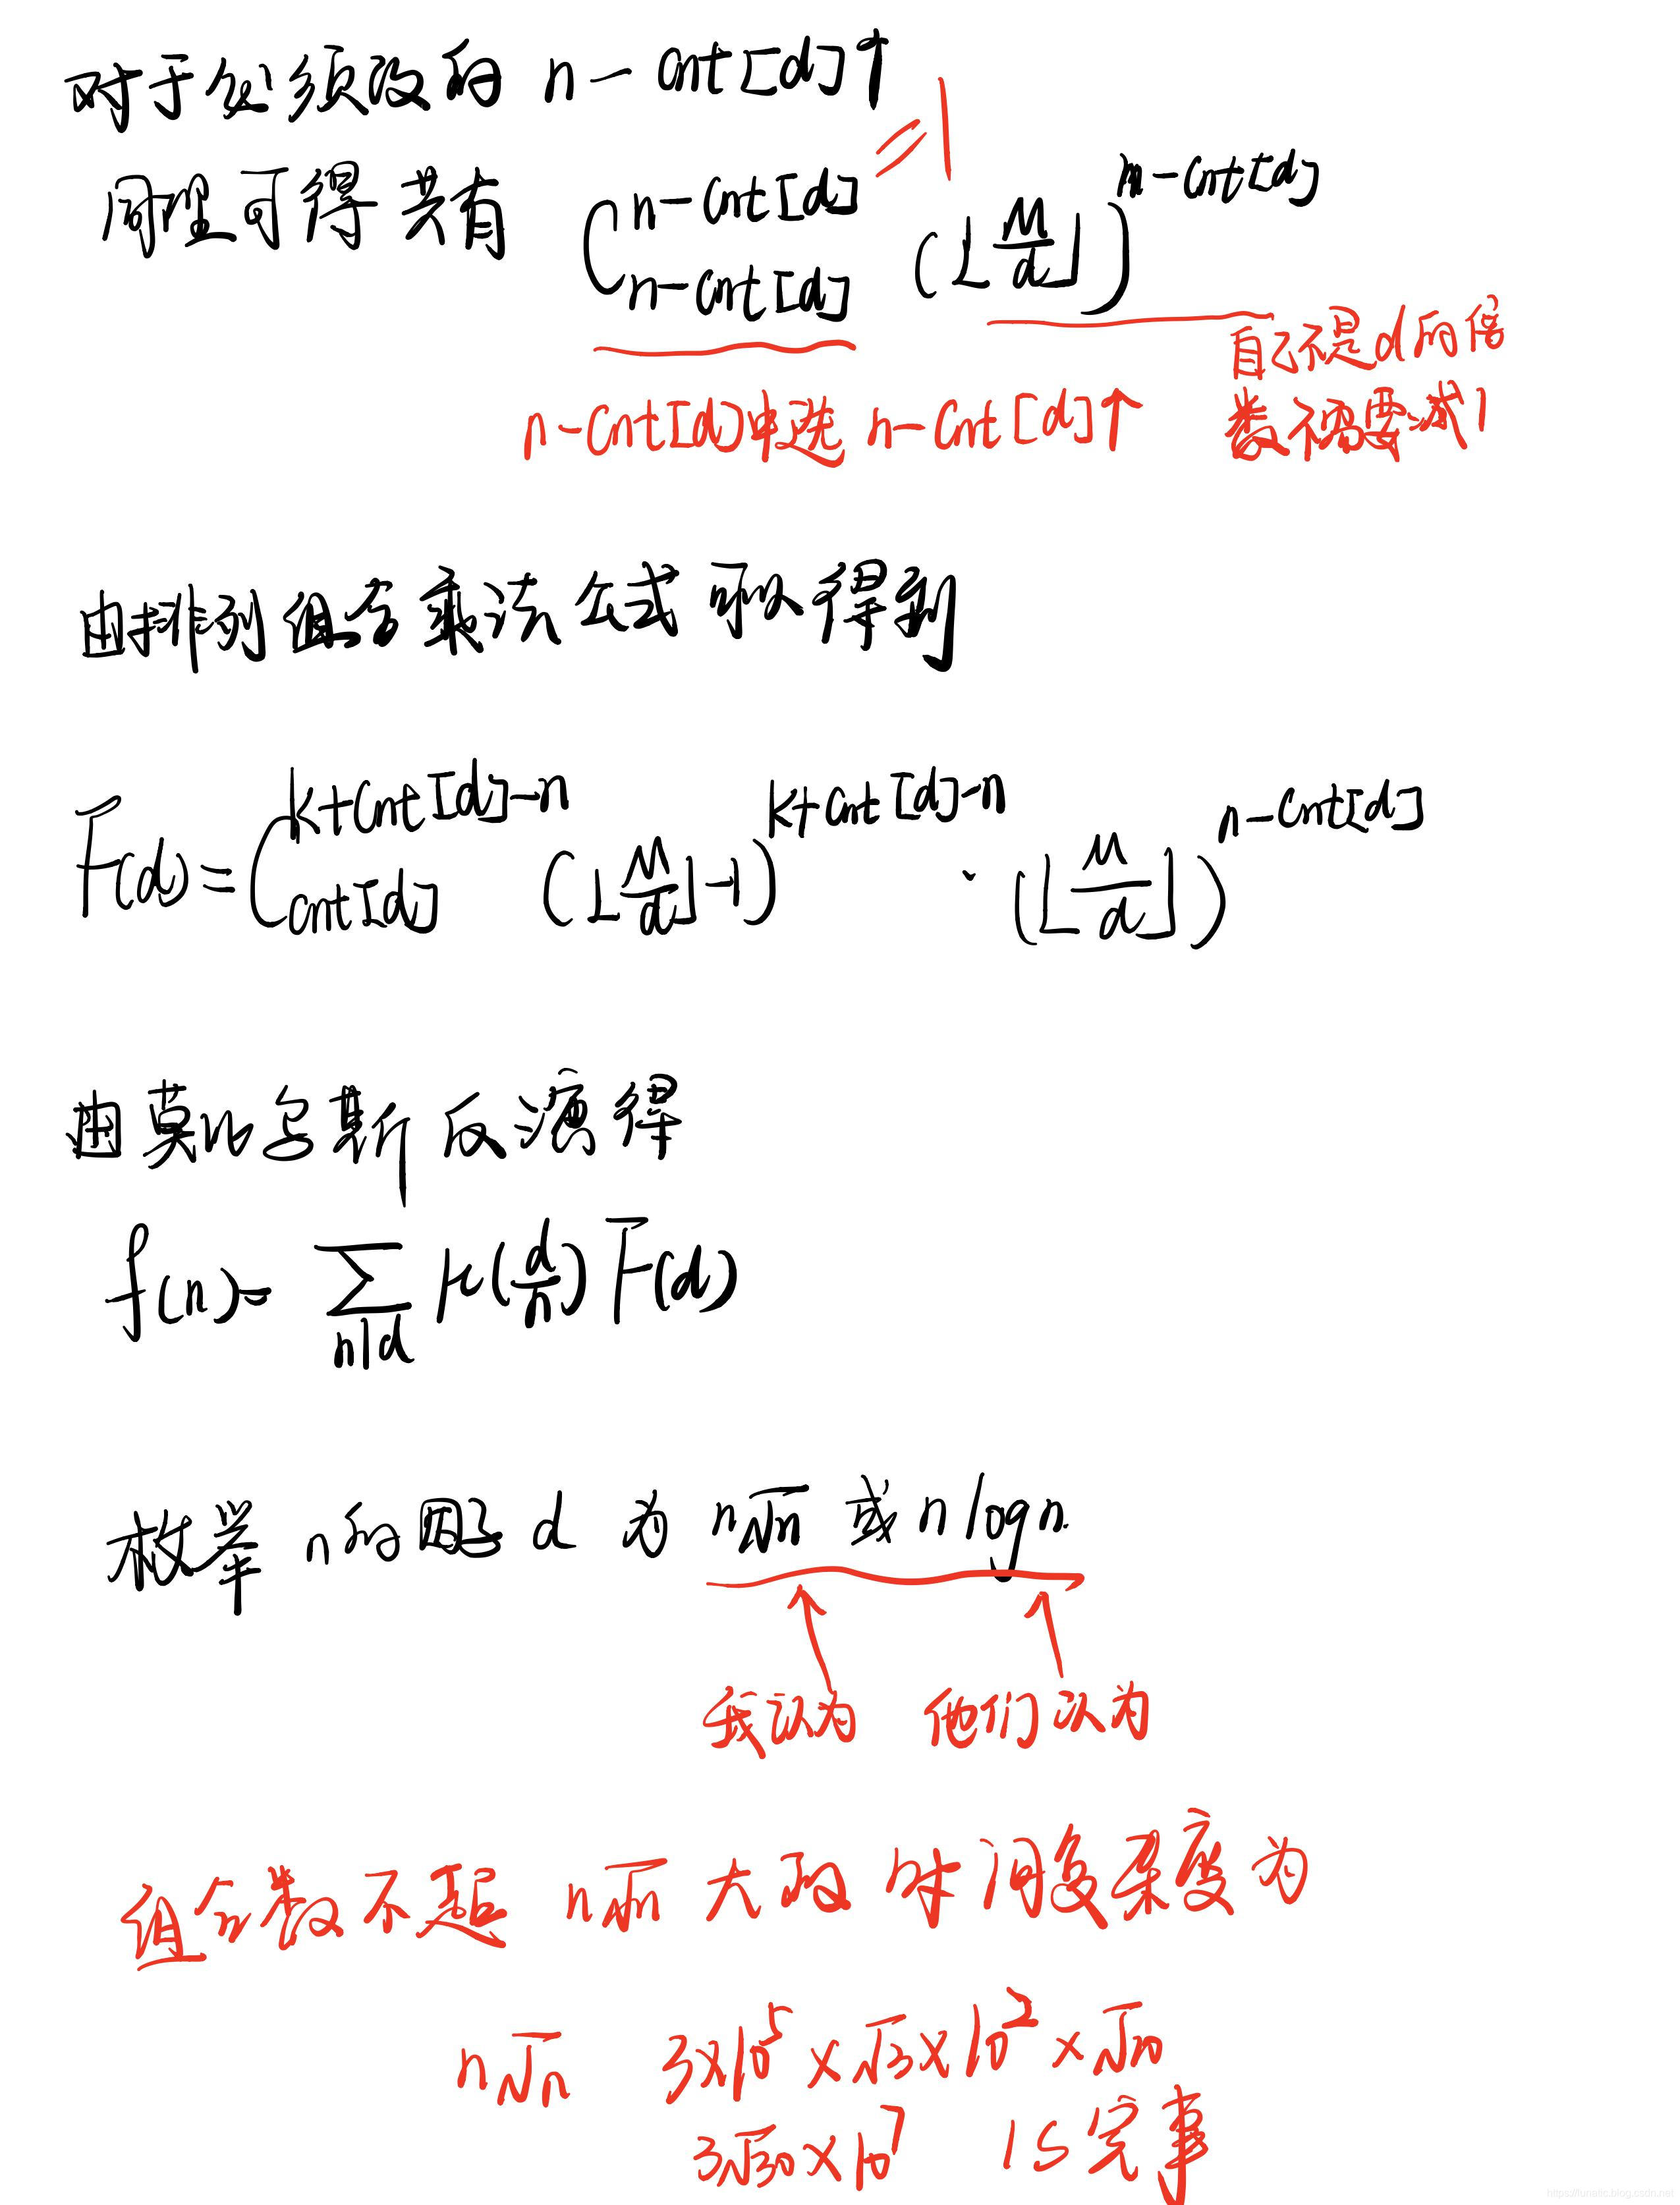 对于必须改的 n-cnt[d]个
同理可得共有 C_{n-cnt[d]}^{n-cnt[d]} (⌊M/d⌋)^{n-cnt[d]}
=1
自己不是d的倍
数不需要减1
n-cnt[d]中选 n-cnt[d]个
由排列组合乘法公式可以得到
F(d) = C_{cnt[d]}^{k+cnt[d]-n} (⌊M/d⌋-1)^{k+cnt[d]-n} · (⌊M/d⌋)^{n-cnt[d]}
由莫比乌斯反演得
f(n) = ∑_{n|d} μ(d/n) F(d)
枚举 n的因子 d 为 n√n 或 nlogn
我认为 他们认为
但个数不超 n√n 大致时间复杂度为
n√n 3×10^5×√3×10^2×√10
3√30×10^7 1s完事